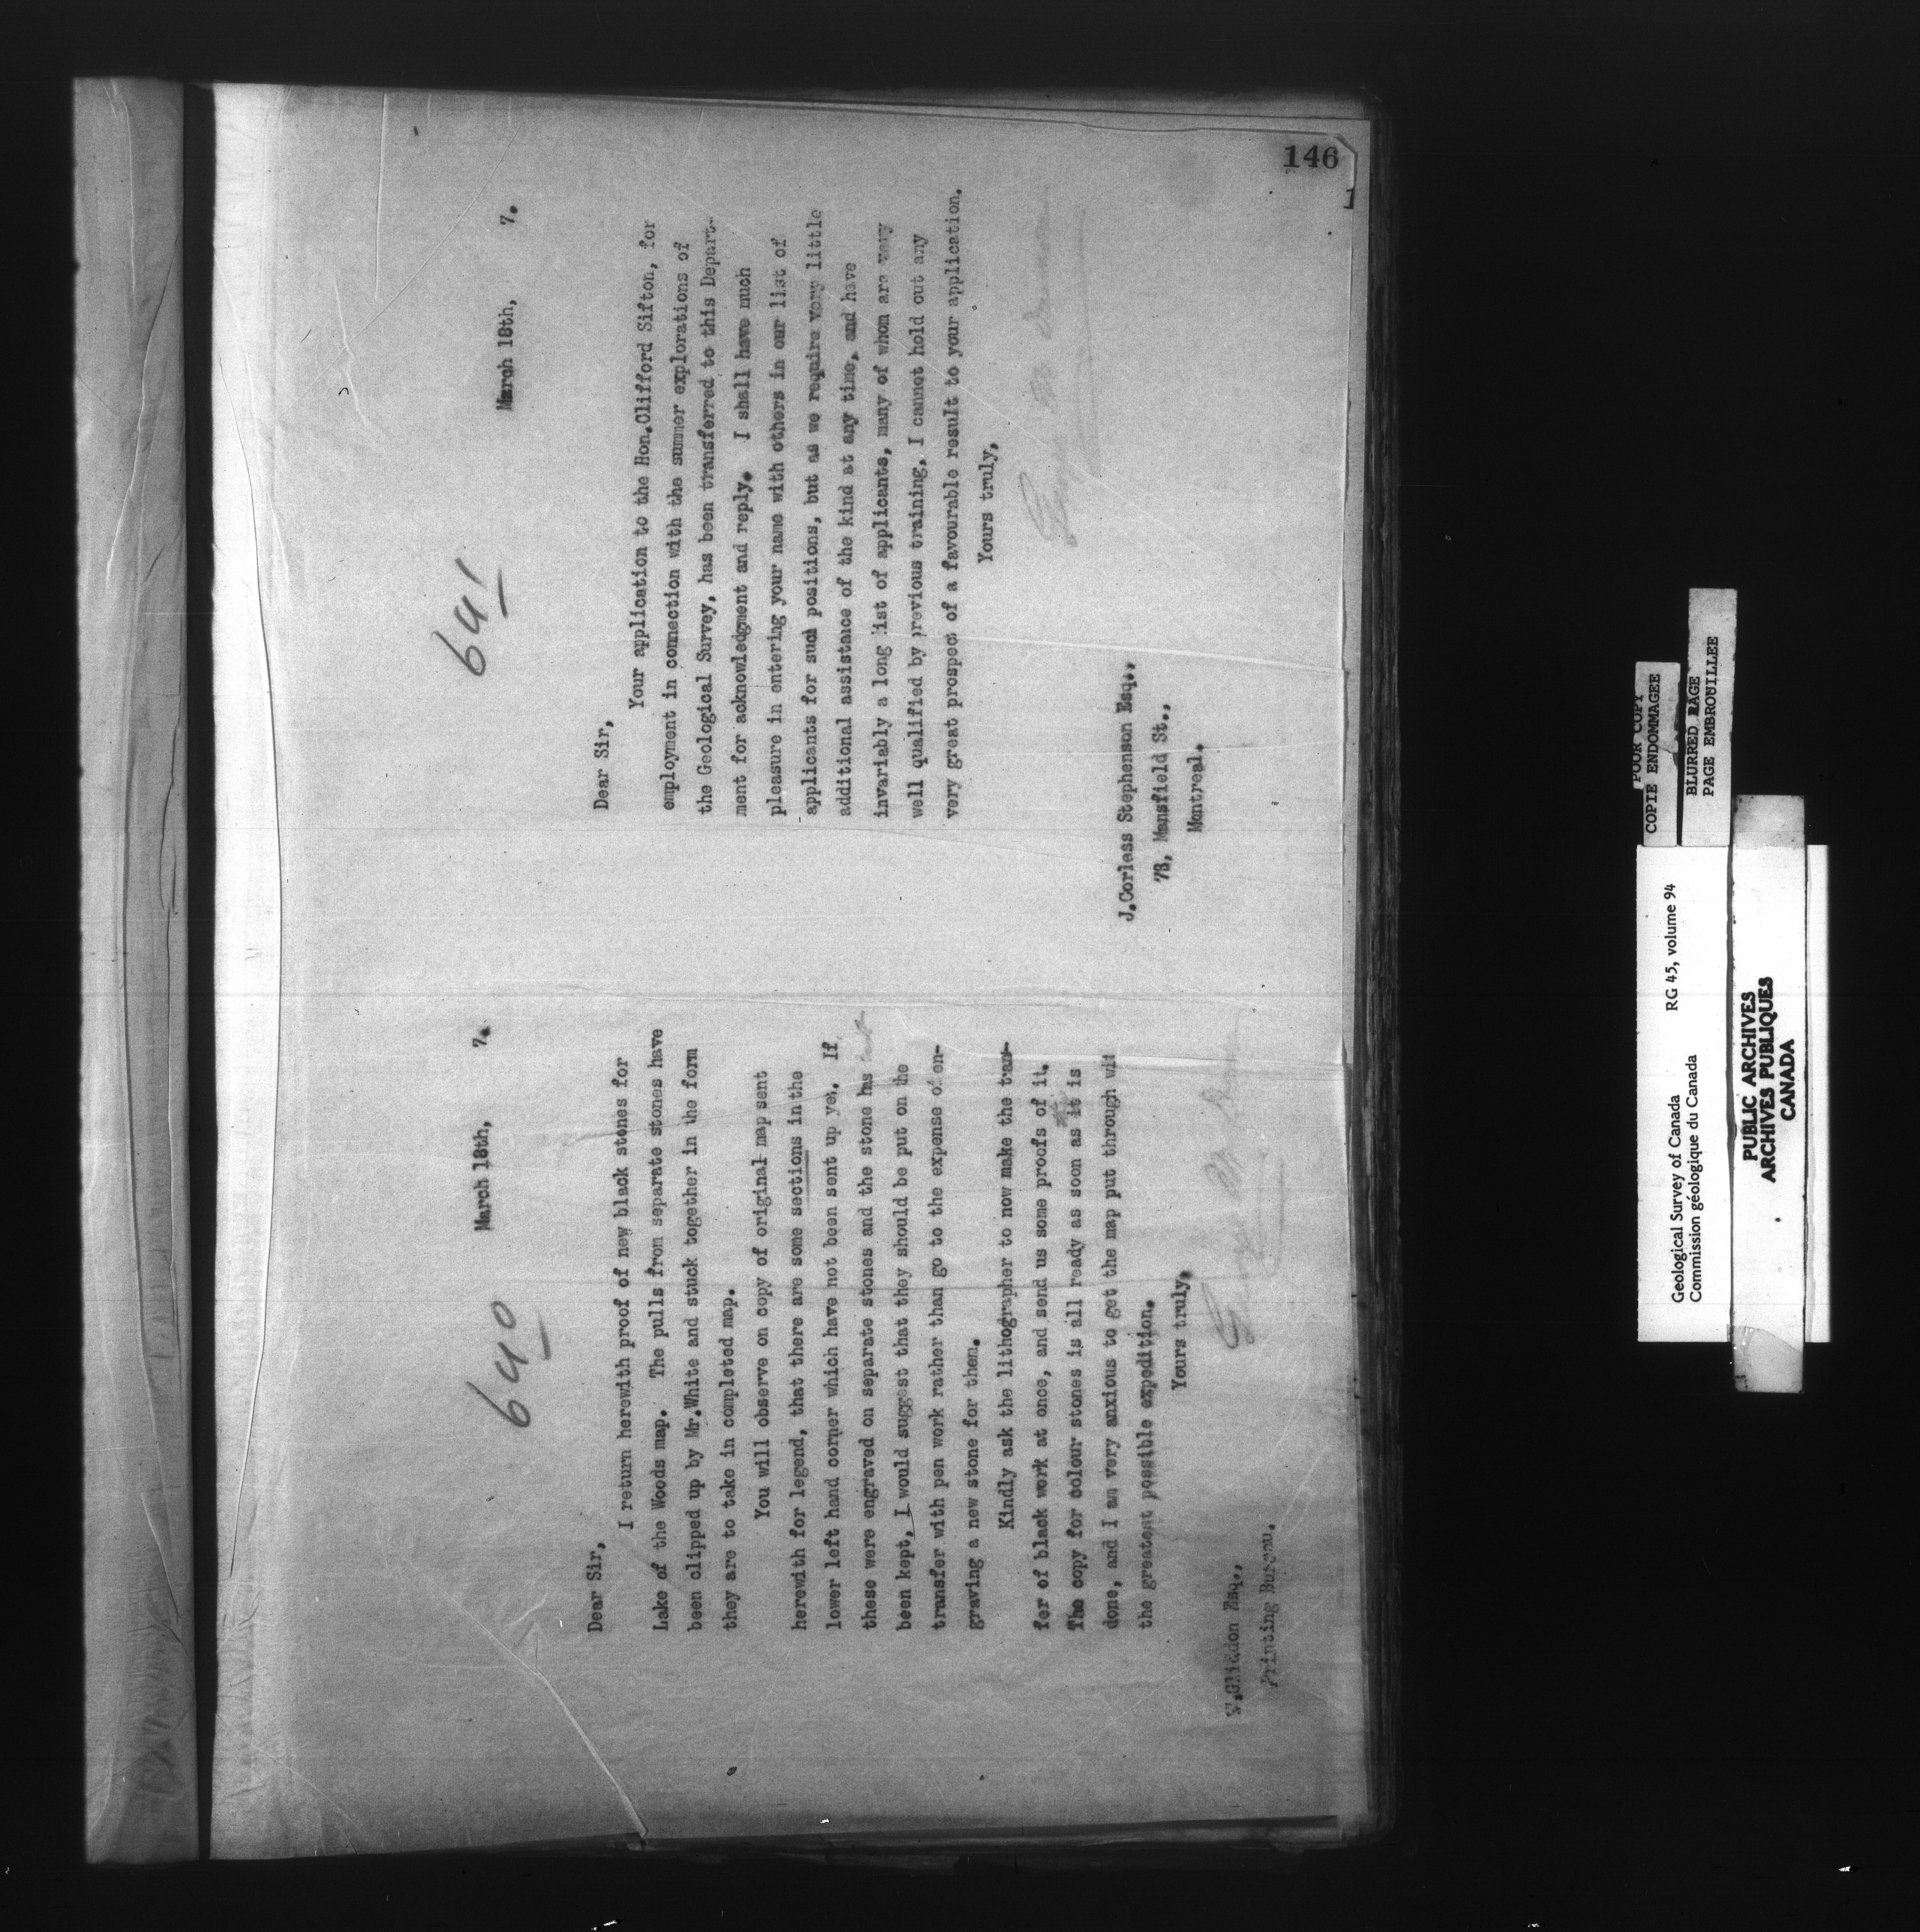 146
640
March 18th, 7.
Dear Sir,
I return herewith proof of new black stones for
Lake of the Woods map. The pulls from separate stones have
been clipped up by Mr.White and stuck together in the form
they are to take in completed map.
You will observe on copy of original map sent
herewith for legend, that there are some sections in the
lower left hand corner which have not been sent up yet. If
these were engraved on separate stones and the stone has
been kept, I would suggest that they should be put on the
transfer with pen work rather than go to the expense of en-
graving a new stone for them.
Kindly ask the lithographer to now make the trans-
fer of black work at once, and send us some proofs of it.
The copy for colour stones is all ready as soon as it is
done, and I am very anxious to get the map put through with
the greatest possible expedition.
Yours truly,
W.Gliddon Esq.,
Printing Bureau.
641
March 18th, 7.
Dear Sir,
Your application to the Hon.Clifford Sifton, for
employment in connection with the summer explorations of
the Geological Survey, has been transferred to this Depart-
ment for acknowledgment and reply. I shall have much
pleasure in entering your name with others in our list of
applicants for such positions, but as we require very little
additional assistance of the kind at any time, and have
invariably a long list of applicants, many of whom are very
well qualified by previous training, I cannot hold out any
very great prospect of a favourable result to your application.
Yours truly,
J.Corless Stephenson Esq.,
73, Mansfield St.,
Montreal.
POOR COPY
COPIE ENDOMMAGEE
BLURRED PAGE
PAGE EMBROUILLEE
Geological Survey of Canada RG 45, volume 94
Commission géologique du Canada
PUBLIC ARCHIVES
ARCHIVES PUBLIQUES
CANADA